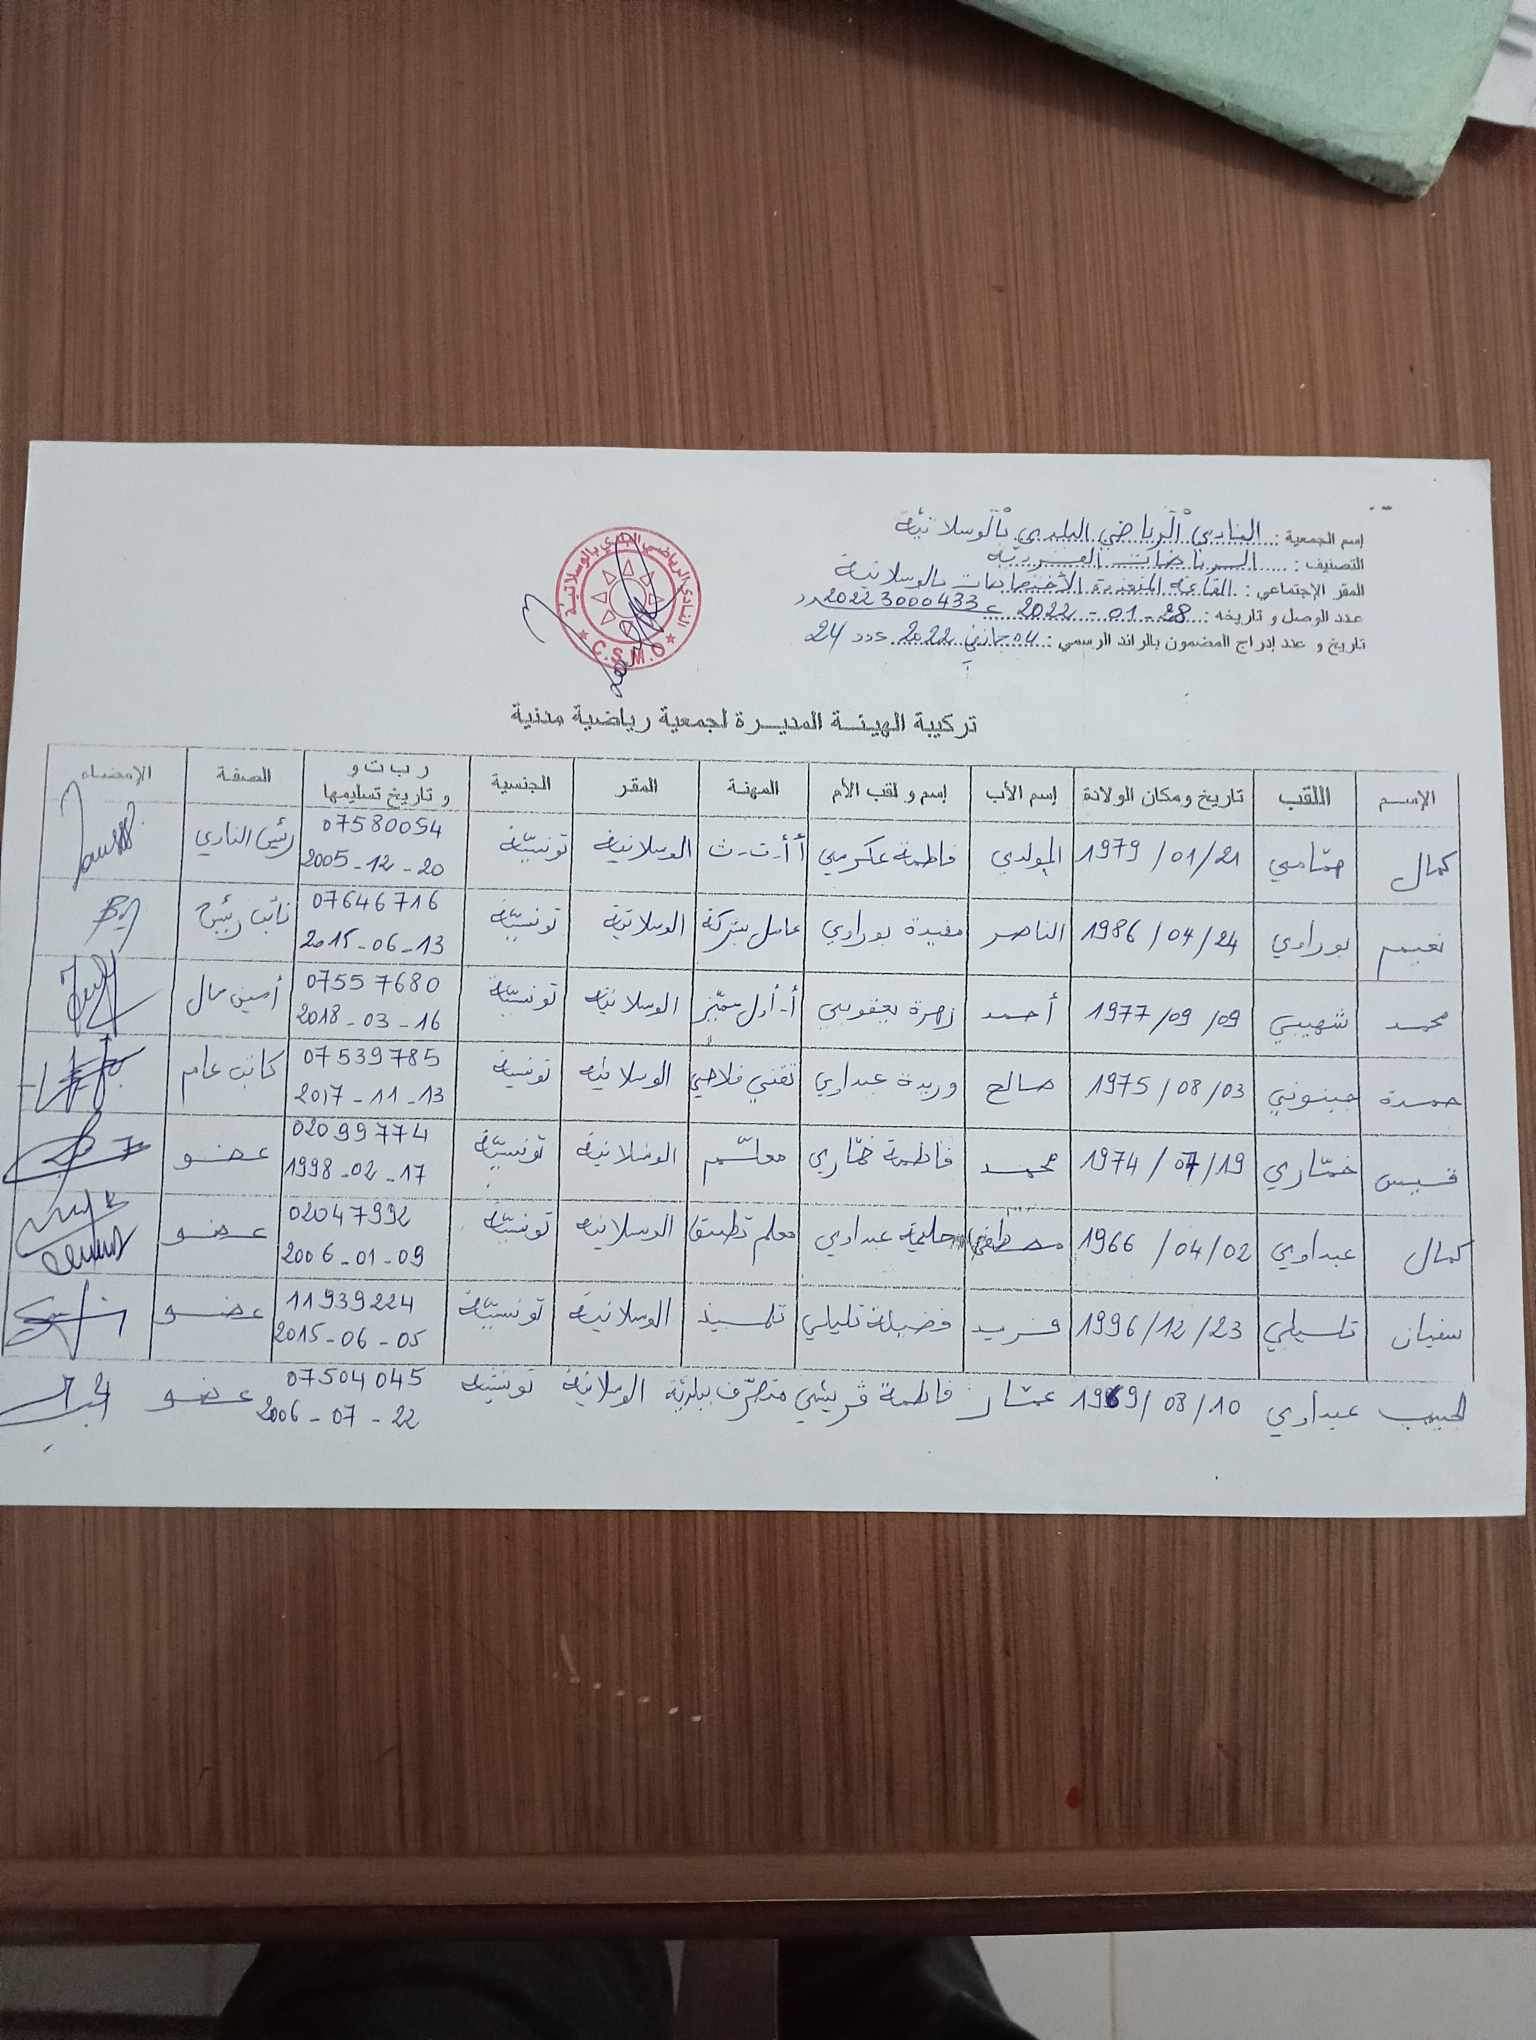 إسم الجمعية : النادي الرياضي البلدي بالوسلاتية
التصنيف : الرياضات الفردية
المقر الإجتماعي : القاعة المتعددة الأختصاصات بالوسلاتية
عدد الوصل و تاريخه : 28-01-2022
تاريخ و عدد إدراج المضمون بالرائد الرسمي : 04 جانفي 2022 عدد 24
النادي الرياضي البلدي بالوسلاتية
C.S.M.O
تركيبة الهيئة المديرة لجمعية رياضية مدنية
الإسم اللقب تاريخ ومكان الولادة إسم الأب إسم و لقب الأم المهنة المقر الجنسية ر ب ت و و تاريخ تسليمها الصفة الإمضاء
كمال همّامي 1979 /01/21 المولدي فاطمة عكرمي أ.أ.ت.ث الوسلاتية تونسيّة 07580054 2005-12-20 رئيس النادي
نعيم بوراوي 1986 /04/24 الناصر مفيدة بوراوي عامل بشركة الوسلاتية تونسيّة 07646716 2015-06-13 نائب رئيس
محمد شهيبي 1977/09/09 أحمد زهرة يعقوبي أ.أول مميّز الوسلاتية تونسيّة 07557680 2018-03-16 أمين مال
حمدة 1975/08/03 صالح وريدة عبداوي تقني فلاحي الوسلاتية تونسية 07539785 2017-11-13 كاتب عام
قيس خمّاري 1974/07/19 محمد فاطمة خمّاري معلّم الوسلاتية تونسيّة 02099774 1998-02-17 عضو
كمال عبداوي 1966 /04/02 مصطفى حليمة عبداوي معلم تطبيق الوسلاتية تونسيّة 02047992 2006-01-09 عضو
سفيان تليلي 1996/12/23 فريد فضيلة تليلي تلميذ الوسلاتية تونسيّة 11939224 2015-06-05 عضو
الحبيب عبداوي 1969/08/10 عمّار فاطمة قريشي متصرّف ببلدية الوسلاتية تونسيّة 07504045 2006-07-22 عضو